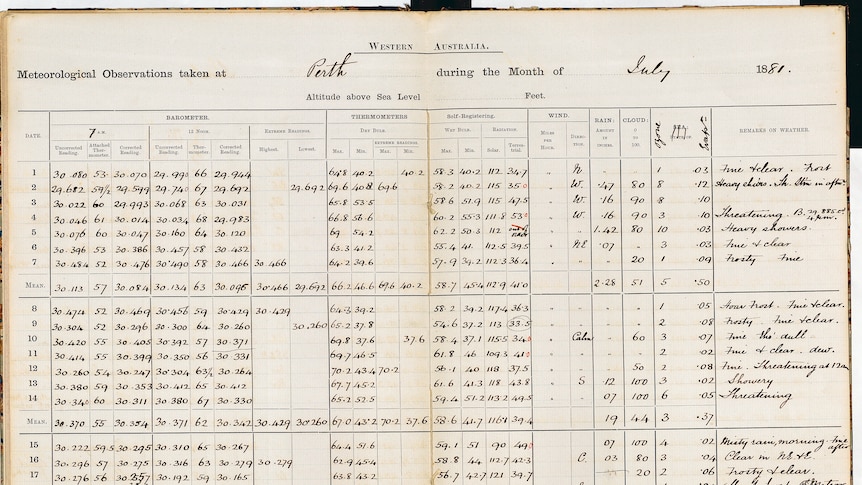 WESTERN AUSTRALIA.
Meteorological Observations taken at Perth during the Month of July 1881.
Altitude above Sea Level Feet.
BAROMETER. THERMOMETERS Self-Registering. WIND. RAIN: CLOUD:
DATE. 7 A.M. 12 NOON. EXTREME READINGS. DRY BULB. WET BULB. RADIATION. MILES PER HOUR. DIRECTION. AMOUNT IN INCHES. 0 TO 100. Ozone REMARKS ON WEATHER.
EXTREME READINGS
Uncorrected Reading. Attached Thermometer. Corrected Reading. Uncorrected Reading. Thermometer. Corrected Reading. Highest. Lowest. Max. Min. Max. Min. Max. Min. Solar. Terrestrial.
1 30.080 53 30.070 29.990 66 29.944 64.8 40.2 40.2 58.3 40.2 112 34.7 " N 1 .03 Fine & clear. Frost
2 29.682 59/2 29.599 29.740 67 29.692 29.692 69.6 40.8 69.6 58.2 40.2 115 35.0 " W. .47 80 8 .12 Heavy sho'rs. Th. Stm in aftn.
3 30.022 60 29.993 30.068 63 30.031 65.8 53.5 58.6 51.9 115 47.5 " W. .16 90 8 .10
4 30.046 61 30.014 30.034 68 29.983 66.8 56.6 60.2 55.3 111.8 53.0 " W .16 90 3 .10 Threatening. B. 29.885 at 4 p.m.
5 30.076 60 30.047 30.160 64 30.120 69 54.2 62.2 50.3 112 " 1.42 80 10 .03 Heavy showers.
6 30.396 53 30.386 30.457 58 30.432 63.3 41.2 55.4 41. 112.5 39.5 " NE .07 " 3 .03 Fine & clear
7 30.484 52 30.476 30.490 58 30.466 30.466 64.2 39.6 57.9 39.2 112.3 36.4 " 20 1 .09 Frosty Fine
MEAN. 30.113 57 30.084 30.134 63 30.095 30.466 29.692 66.2 46.6 69.6 40.2 58.7 45.4 112.9 41.0 2.28 51 5 .50
8 30.474 52 30.469 30.456 59 30.429 30.429 64.3 39.2 58.2 39.2 117.4 36.3 " 1 .05 Hoar Frost. Fine & clear.
9 30.304 52 30.296 30.300 64 30.260 30.260 65.2 37.8 54.6 37.2 113 33.5 " 2 .08 Frosty. Fine & clear.
10 30.420 55 30.405 30.392 57 30.371 69.8 37.6 37.6 58.4 37.1 115.5 34.0 " Calm 60 3 .07 Fine tho' dull.
11 30.414 55 30.399 30.350 56 30.331 69.7 46.5 61.8 46 109.3 41.0 " " 2 .02 Fine & clear. dew.
12 30.260 54 30.247 30.304 63/2 30.264 70.2 43.4 70.2 56.1 40 118 37.5 " 50 2 .08 Fine. Threatening at 12 am
13 30.380 59 30.353 30.412 65 30.412 67.7 45.2 61.6 41.3 118 43.8 " S .12 100 3 .02 Showery
14 30.340 60 30.311 30.380 67 30.330 65.2 52.5 59.4 51.2 113.2 49.5 " .07 100 6 .05 Threatening
MEAN. 30.370 55 30.354 30.371 62 30.342 30.429 30.260 67.0 43.2 70.2 37.6 58.6 41.7 116.1 39.4 19 44 3 .37
15 30.222 59.5 30.295 30.310 65 30.267 64.4 51.6 59.1 51 90 49.0 07 100 4 .02 Misty rain, morning. fine after
16 30.296 57 30.275 30.316 63 30.279 30.279 62.9 45.4 58.8 44 112.7 42.3 " C. 03 80 3 .04 Clear in NE & E.
17 30.276 56 30.257 30.192 59 30.165 63.8 43.2 56.7 42.7 121 39.7 20 2 .06 Frosty & clear.